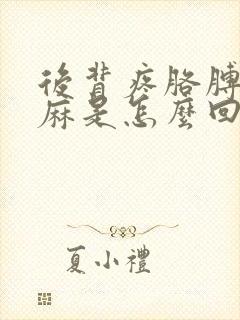 後背疼胳膊
麻是怎麼回
夏小禮